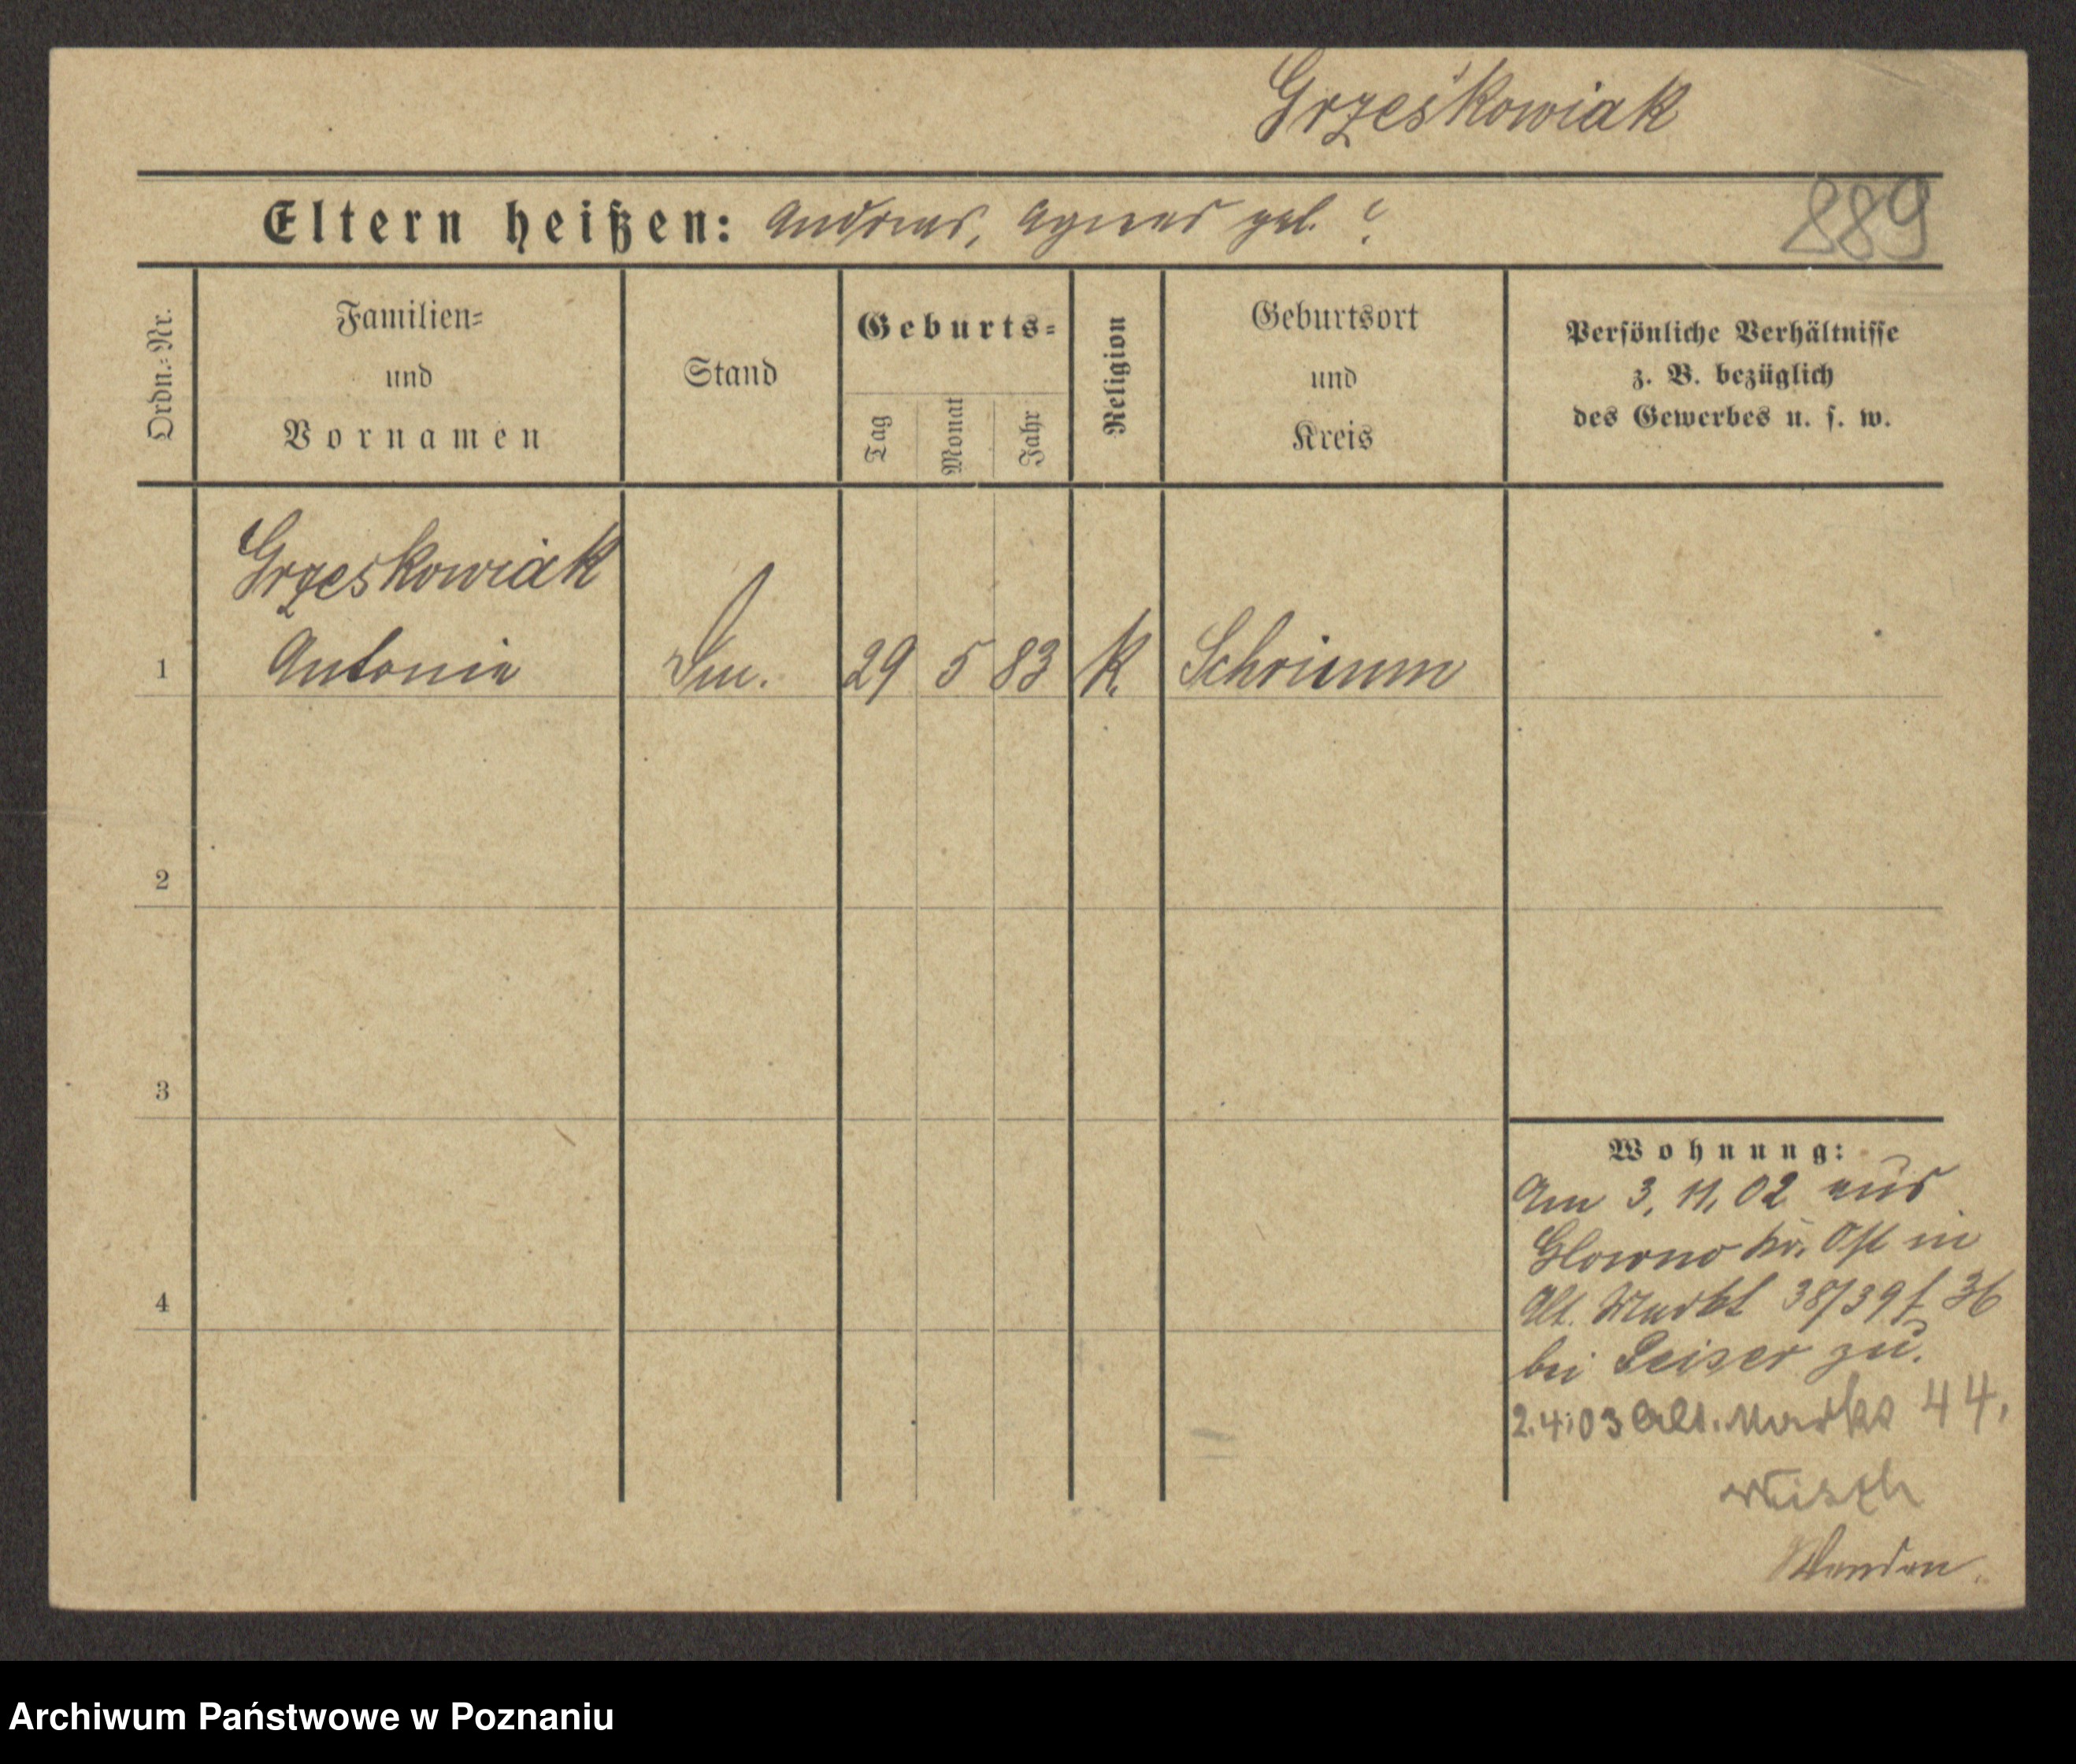 Grześkowiak
Eltern heißen: Andreas, Agnes geb. ?
889
Ordn.-Nr.
Familien-
und
Vornamen
Stand
Geburts-
Tag
Monat
Jahr
Religion
Geburtsort
und
Kreis
Persönliche Verhältnisse
z. B. bezüglich
des Gewerbes u. s. w.
Grzeskowiak
1 Antonie 29 5 83 K. Schrimm
2
3
4
Wohnung:
Am 3. 11. 02 aus
Glowno Kr. Ost in
Alt. Markt 38/39
bei Peiser zu.
2. 4. 03 Alt. Markt 44.
Archiwum Państwowe w Poznaniu